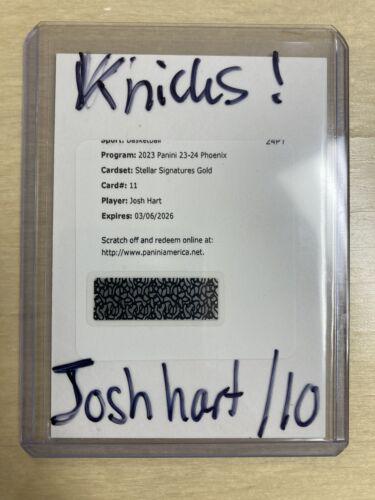 Knicks!
Sport: Basketball 24PT
Program: 2023 Panini 23-24 Phoenix
Cardset: Stellar Signatures Gold
Card#: 11
Player: Josh Hart
Expires: 03/06/2026
Scratch off and redeem online at:
http://www.paniniamerica.net.
Josh hart /10